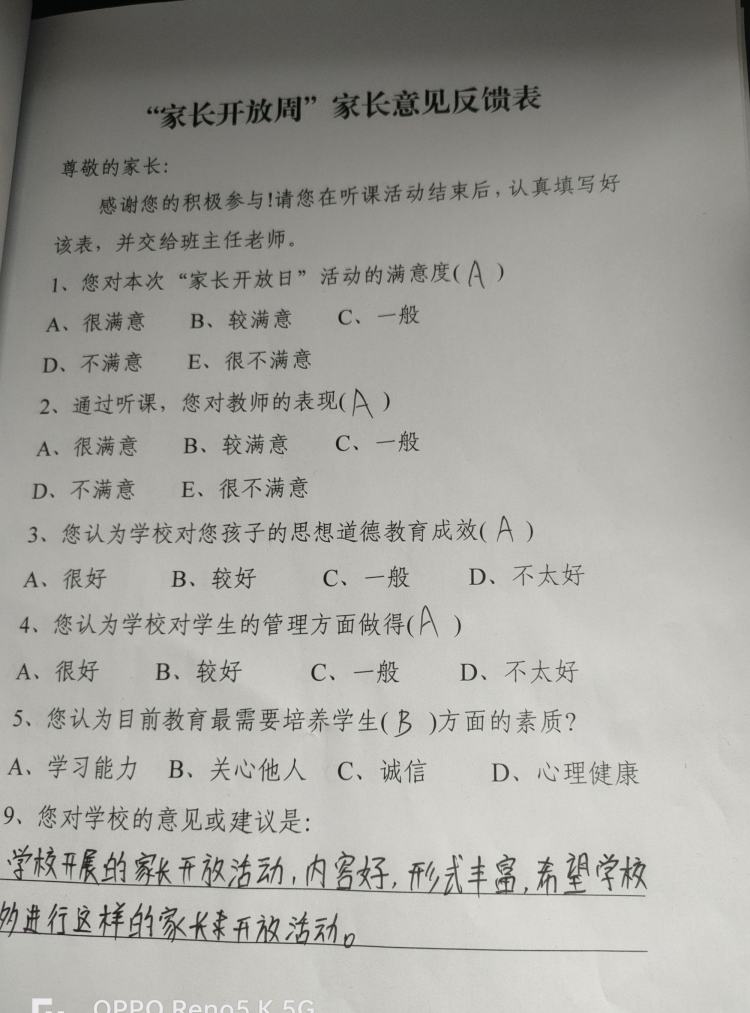 “家长开放周”家长意见反馈表
尊敬的家长：
感谢您的积极参与！请您在听课活动结束后，认真填写好
该表，并交给班主任老师。
1、您对本次“家长开放日”活动的满意度( A )
A、很满意 B、较满意 C、一般
D、不满意 E、很不满意
2、通过听课，您对教师的表现( A )
A、很满意 B、较满意 C、一般
D、不满意 E、很不满意
3、您认为学校对您孩子的思想道德教育成效( A )
A、很好 B、较好 C、一般 D、不太好
4、您认为学校对学生的管理方面做得( A )
A、很好 B、较好 C、一般 D、不太好
5、您认为目前教育最需要培养学生( B )方面的素质？
A、学习能力 B、关心他人 C、诚信 D、心理健康
9、您对学校的意见或建议是：
学校开展的家长开放活动，内容好，形式丰富，希望学校
多进行这样的家长来开放活动。
OPPO Reno5 K 5G